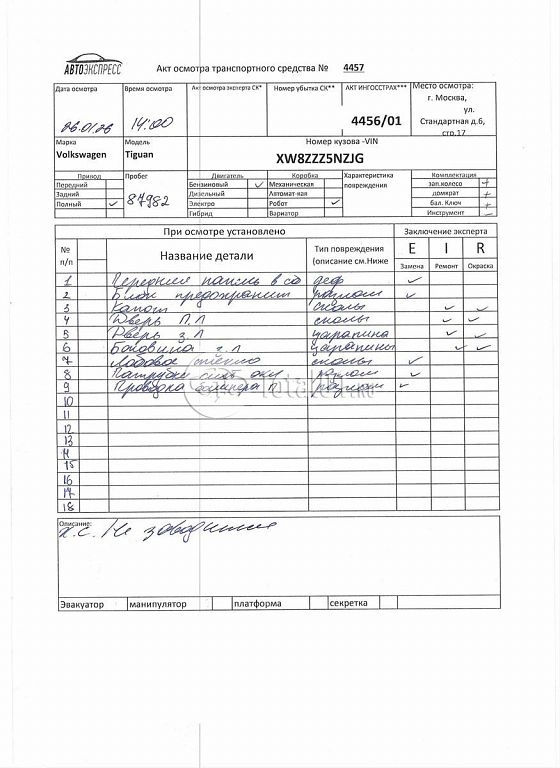 АВТОЭКСПРЕСС
Акт осмотра транспортного средства № 4457
Дата осмотра Время осмотра Акт осмотра эксперта СК* Номер убытка СК** АКТ ИНГОССТРАХ*** Место осмотра:
г. Москва,
ул.
Стандартная д.6,
стр.17
26.01.26 14:00 4456/01
Марка Модель Номер кузова -VIN
Volkswagen Tiguan XW8ZZZ5NZJG
Привод Пробег Двигатель Коробка Характеристика повреждения Комплектация
Передний Бензиновый ✓ Механическая зап.колесо +
Задний Дизельный Автомат-кая домкрат +
Полный ✓ 87982 Электро Робот ✓ бал. Ключ +
Гибрид Вариатор Инструмент -
При осмотре установлено Заключение эксперта
№ п/п Название детали Тип повреждения (описание см.Ниже E I R
Замена Ремонт Окраска
1 Передняя панель в сб деф ✓
2 Блок предохранит разлом ✓
3 Капот сколы ✓ ✓
4 Дверь П.Л сколы ✓ ✓
5 Дверь з.Л царапина ✓ ✓
6 Боковина з.Л царапины ✓ ✓
7 Лобовое стекло сколы ✓
8 Патрубки разлом ✓
9 Проводка бампера п разлом ✓
10
11
12
13
14
15
16
17
18
Описание:
х.с. Не заводится
Эвакуатор манипулятор платформа секретка